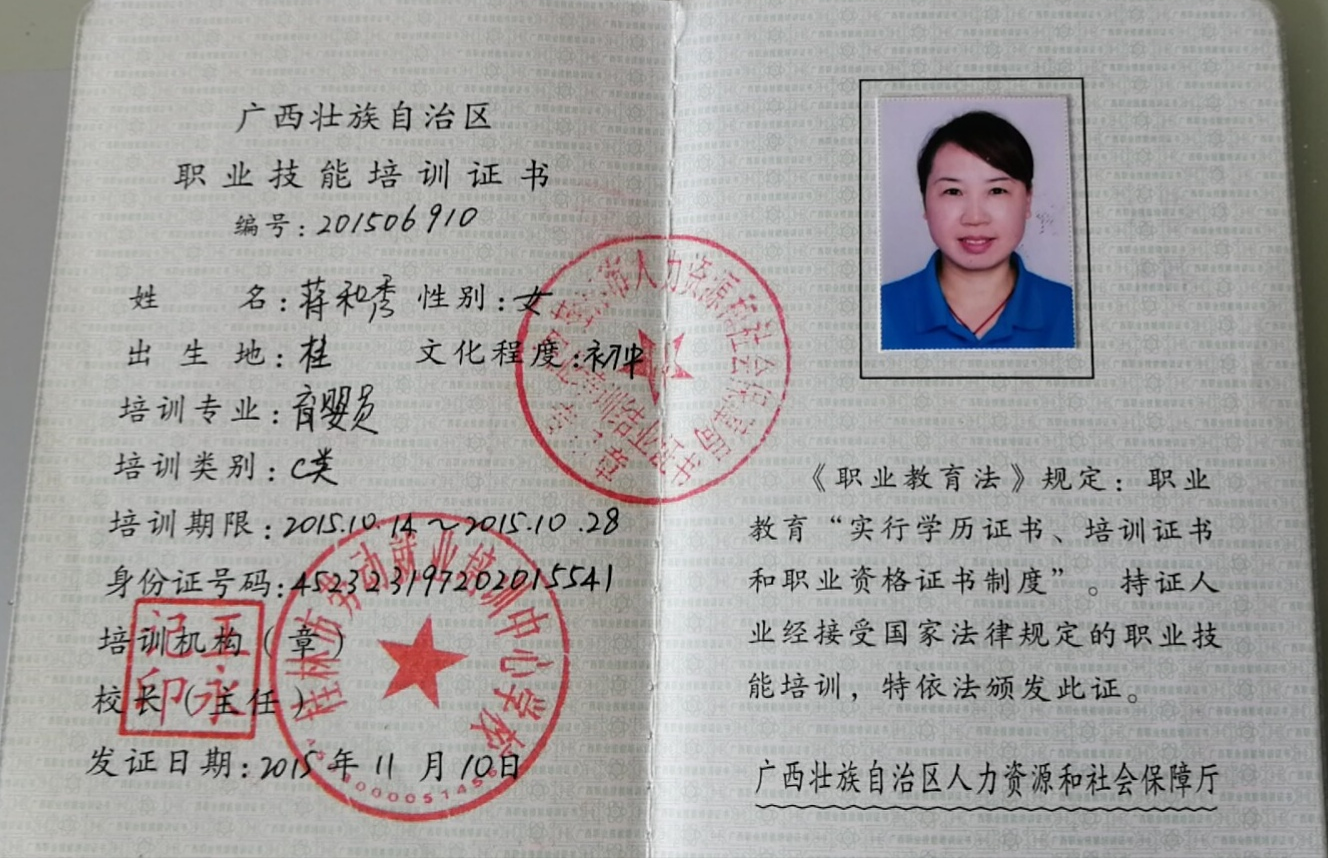 广西壮族自治区
职业技能培训证书
编号：201506910
姓 名：蒋和秀 性别：女
出生地：桂 文化程度：初中
培训专业：育婴员
培训类别：C类
培训期限：2015.10.14～2015.10.28
身份证号码：452323197202015541
培训机构（章）
校长（主任）
发证日期：2015年11月10日
桂林市劳动就业培训中心学校
王永记印
人力资源和社会保障局
培训结业证书
《职业教育法》规定：职业
教育“实行学历证书、培训证书
和职业资格证书制度”。持证人
业经接受国家法律规定的职业技
能培训，特依法颁发此证。
广西壮族自治区人力资源和社会保障厅